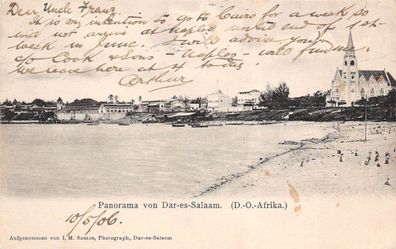 Dear Uncle Franz.
It is my intention to go to Cairo for a week, so
will not arrive at Naples until end of 1st
week in June. Would advise you
to Cook & Sons - Naples - will find me.
we leave here at to day
Arthur
Panorama von Dar-es-Salaam. (D.-O.-Afrika.)
10/5/06
Aufgenommen von I. M. Santos, Photograph, Dar-es-Salaam